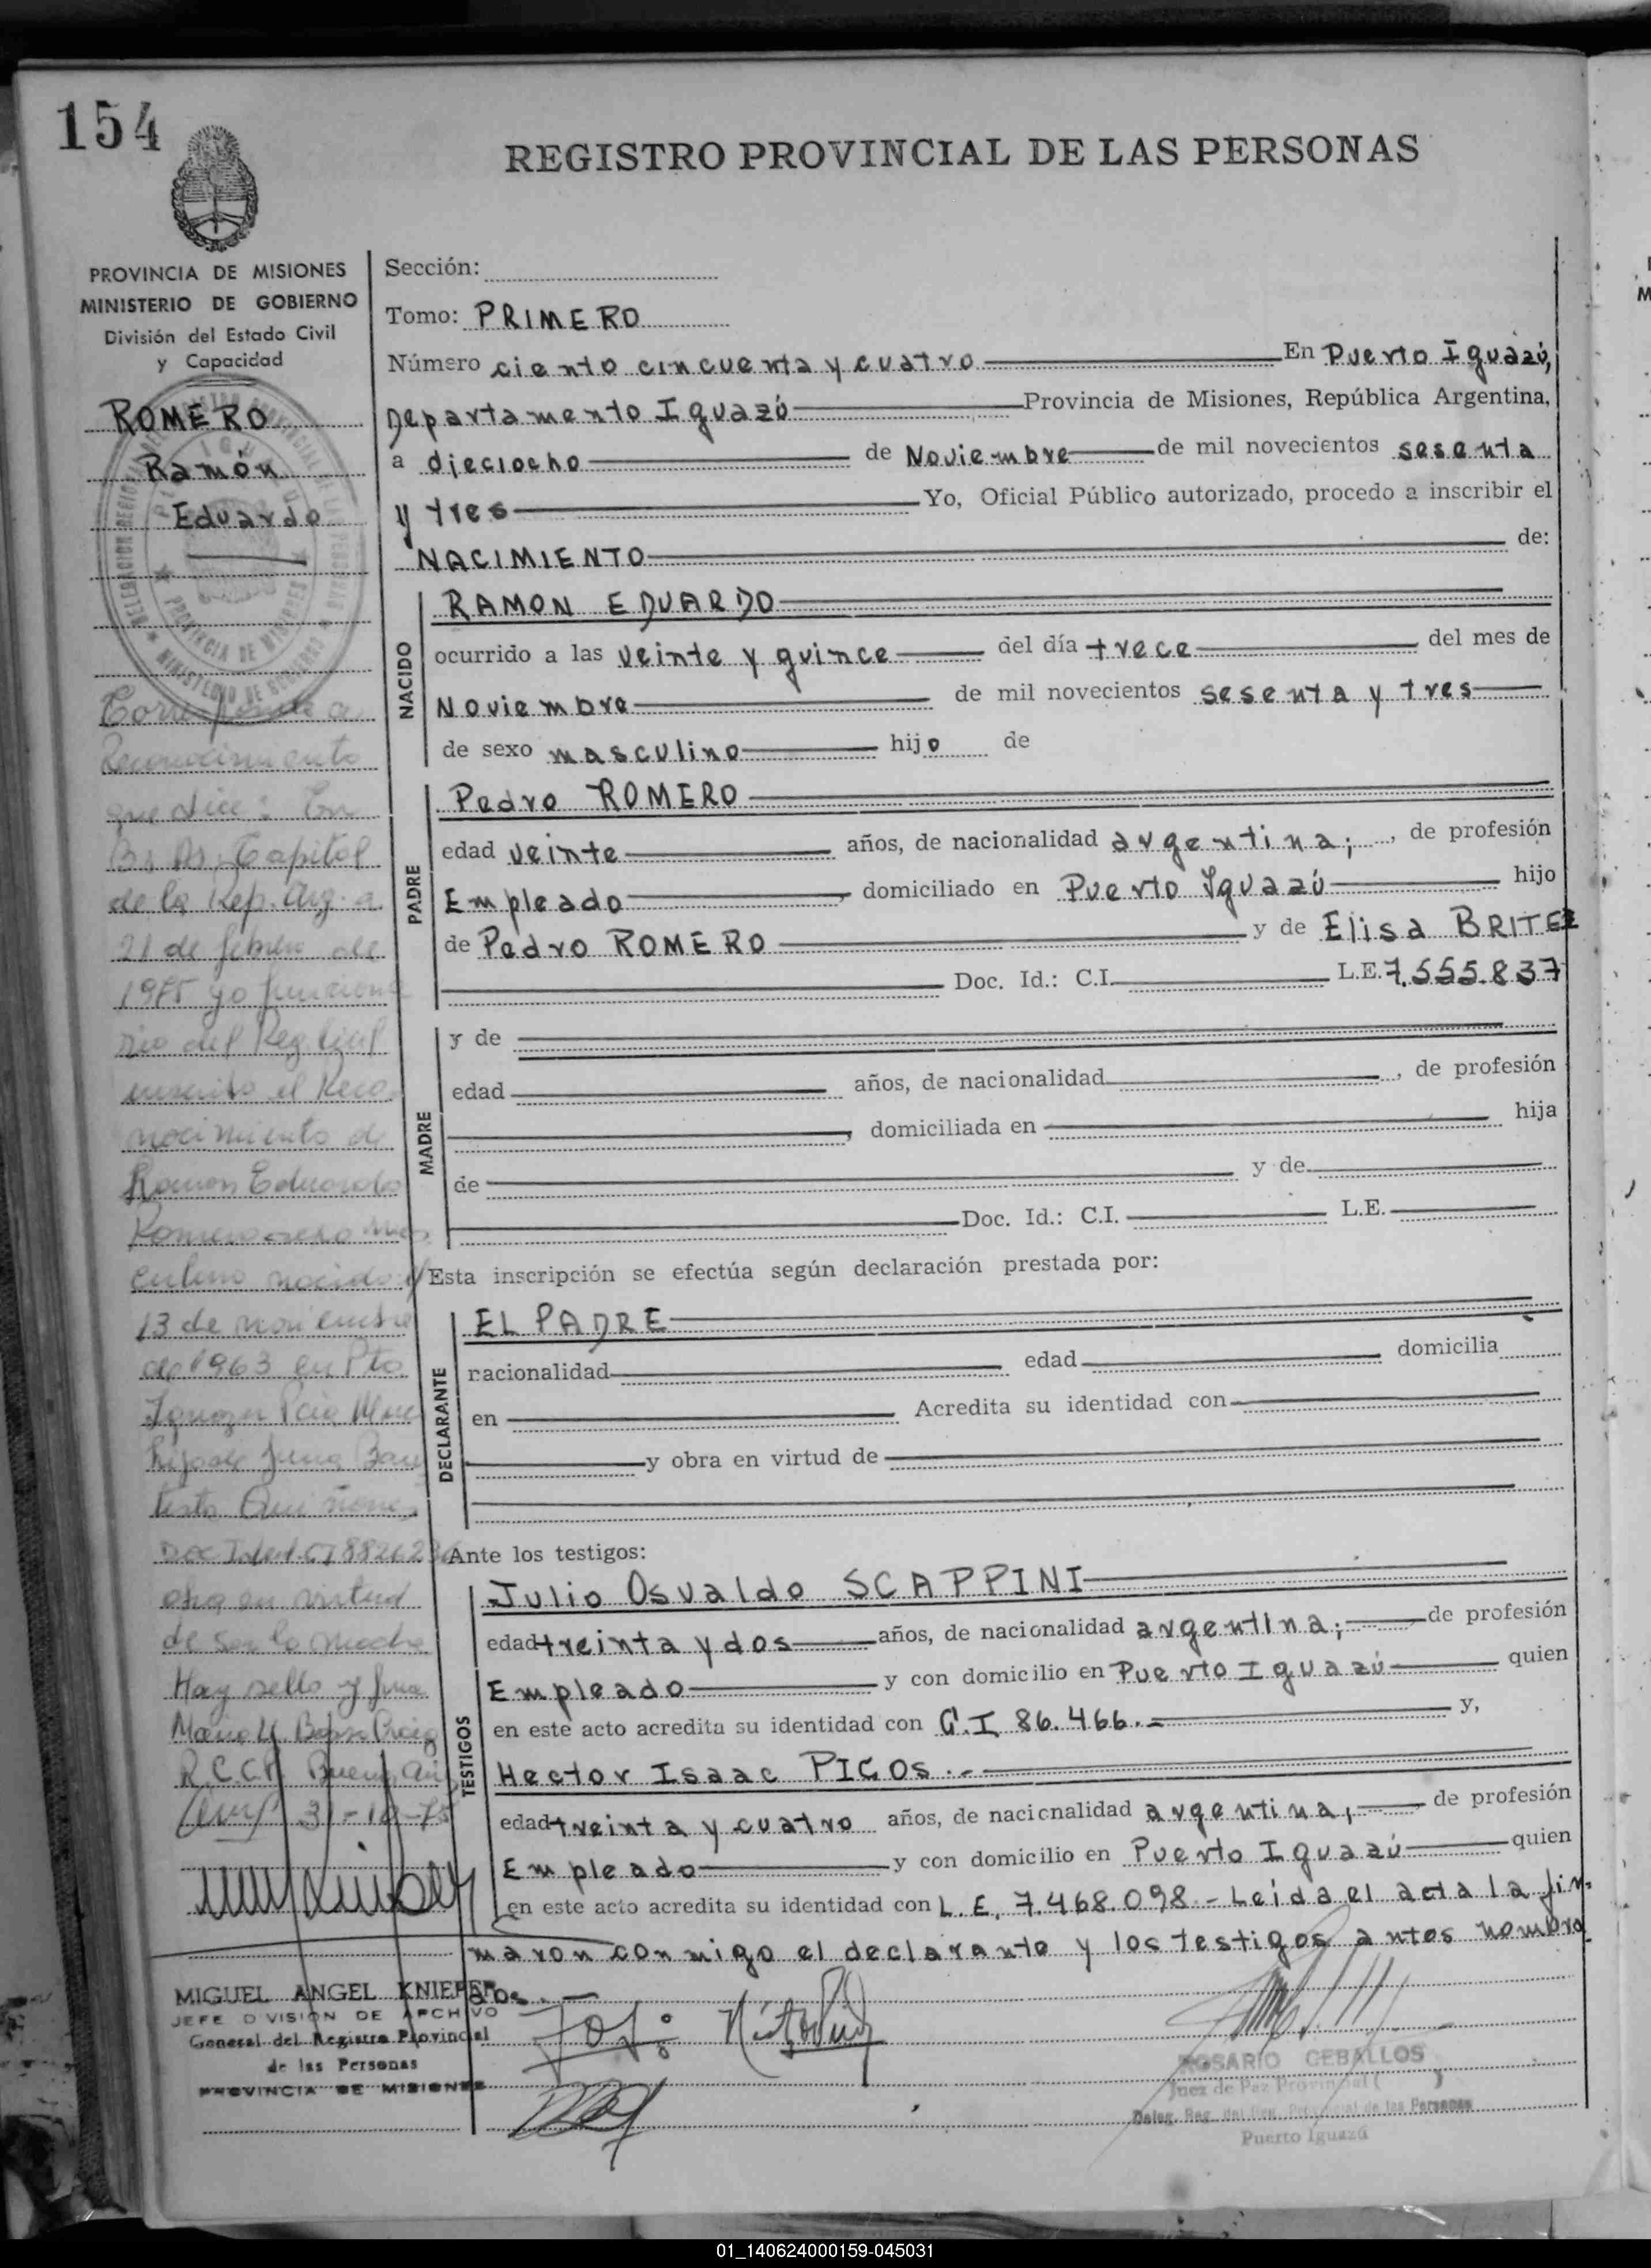 154
REGISTRO PROVINCIAL DE LAS PERSONAS
PROVINCIA DE MISIONES
MINISTERIO DE GOBIERNO
División del Estado Civil
y Capacidad
ROMERO
Ramón
Eduardo
Reconocimiento
que dice: En
Bs As. Capital
de la Rep. Arg. a
21 de febrero de
yo funciona
rio del Reg. Civil
inscribo el Reco
nocimiento de
Ramon Eduardo
Romero sexo mas
culino nacido el
13 de noviembre
de 1963 en Pto.
hijo de Juana Bau
tista Quiñones
Doc Ident
obra en virtud
de ser la madre
Hay sello y firma
R.C.C.P. Buenos Ai
MIGUEL ANGEL KNIEPER
JEFE DIVISION DE ARCHIVO
General del Registro Provincial
de las Personas
PROVINCIA DE MISIONES
Sección:
Tomo: PRIMERO
Número ciento cincuenta y cuatro En Puerto Iguazú,
Departamento Iguazú Provincia de Misiones, República Argentina,
a dieciocho de Noviembre de mil novecientos sesenta
y tres Yo, Oficial Público autorizado, procedo a inscribir el
NACIMIENTO de:
NACIDO
RAMON EDUARDO
ocurrido a las veinte y quince del día trece del mes de
Noviembre de mil novecientos sesenta y tres
de sexo masculino hijo de
PADRE
Pedro ROMERO
edad veinte años, de nacionalidad argentina; , de profesión
Empleado , domiciliado en Puerto Iguazú hijo
de Pedro ROMERO y de Elisa BRITEZ
Doc. Id.: C.I. L.E. 7.555.837
MADRE
y de
edad años, de nacionalidad , de profesión
, domiciliada en hija
de y de
Doc. Id.: C.I. L.E.
Esta inscripción se efectúa según declaración prestada por:
DECLARANTE
EL PADRE
nacionalidad edad domicilia
en Acredita su identidad con
y obra en virtud de
Ante los testigos:
TESTIGOS
Julio Osvaldo SCAPPINI
edad treinta y dos años, de nacionalidad argentina; de profesión
Empleado y con domicilio en Puerto Iguazú quien
en este acto acredita su identidad con C.I 86.466.- y,
Hector Isaac PICOS.-
edad treinta y cuatro años, de nacionalidad argentina, de profesión
Empleado y con domicilio en Puerto Iguazú quien
en este acto acredita su identidad con L.E. 7.468.098 - Leida el acta la fir-
maron conmigo el declarante y los testigos antes nombra
dos.-
ROSARIO CEBALLOS
Juez de Paz Provincial
Deleg. Reg. del Reg. Provincial de las Personas
Puerto Iguazú
01_140624000159-045031